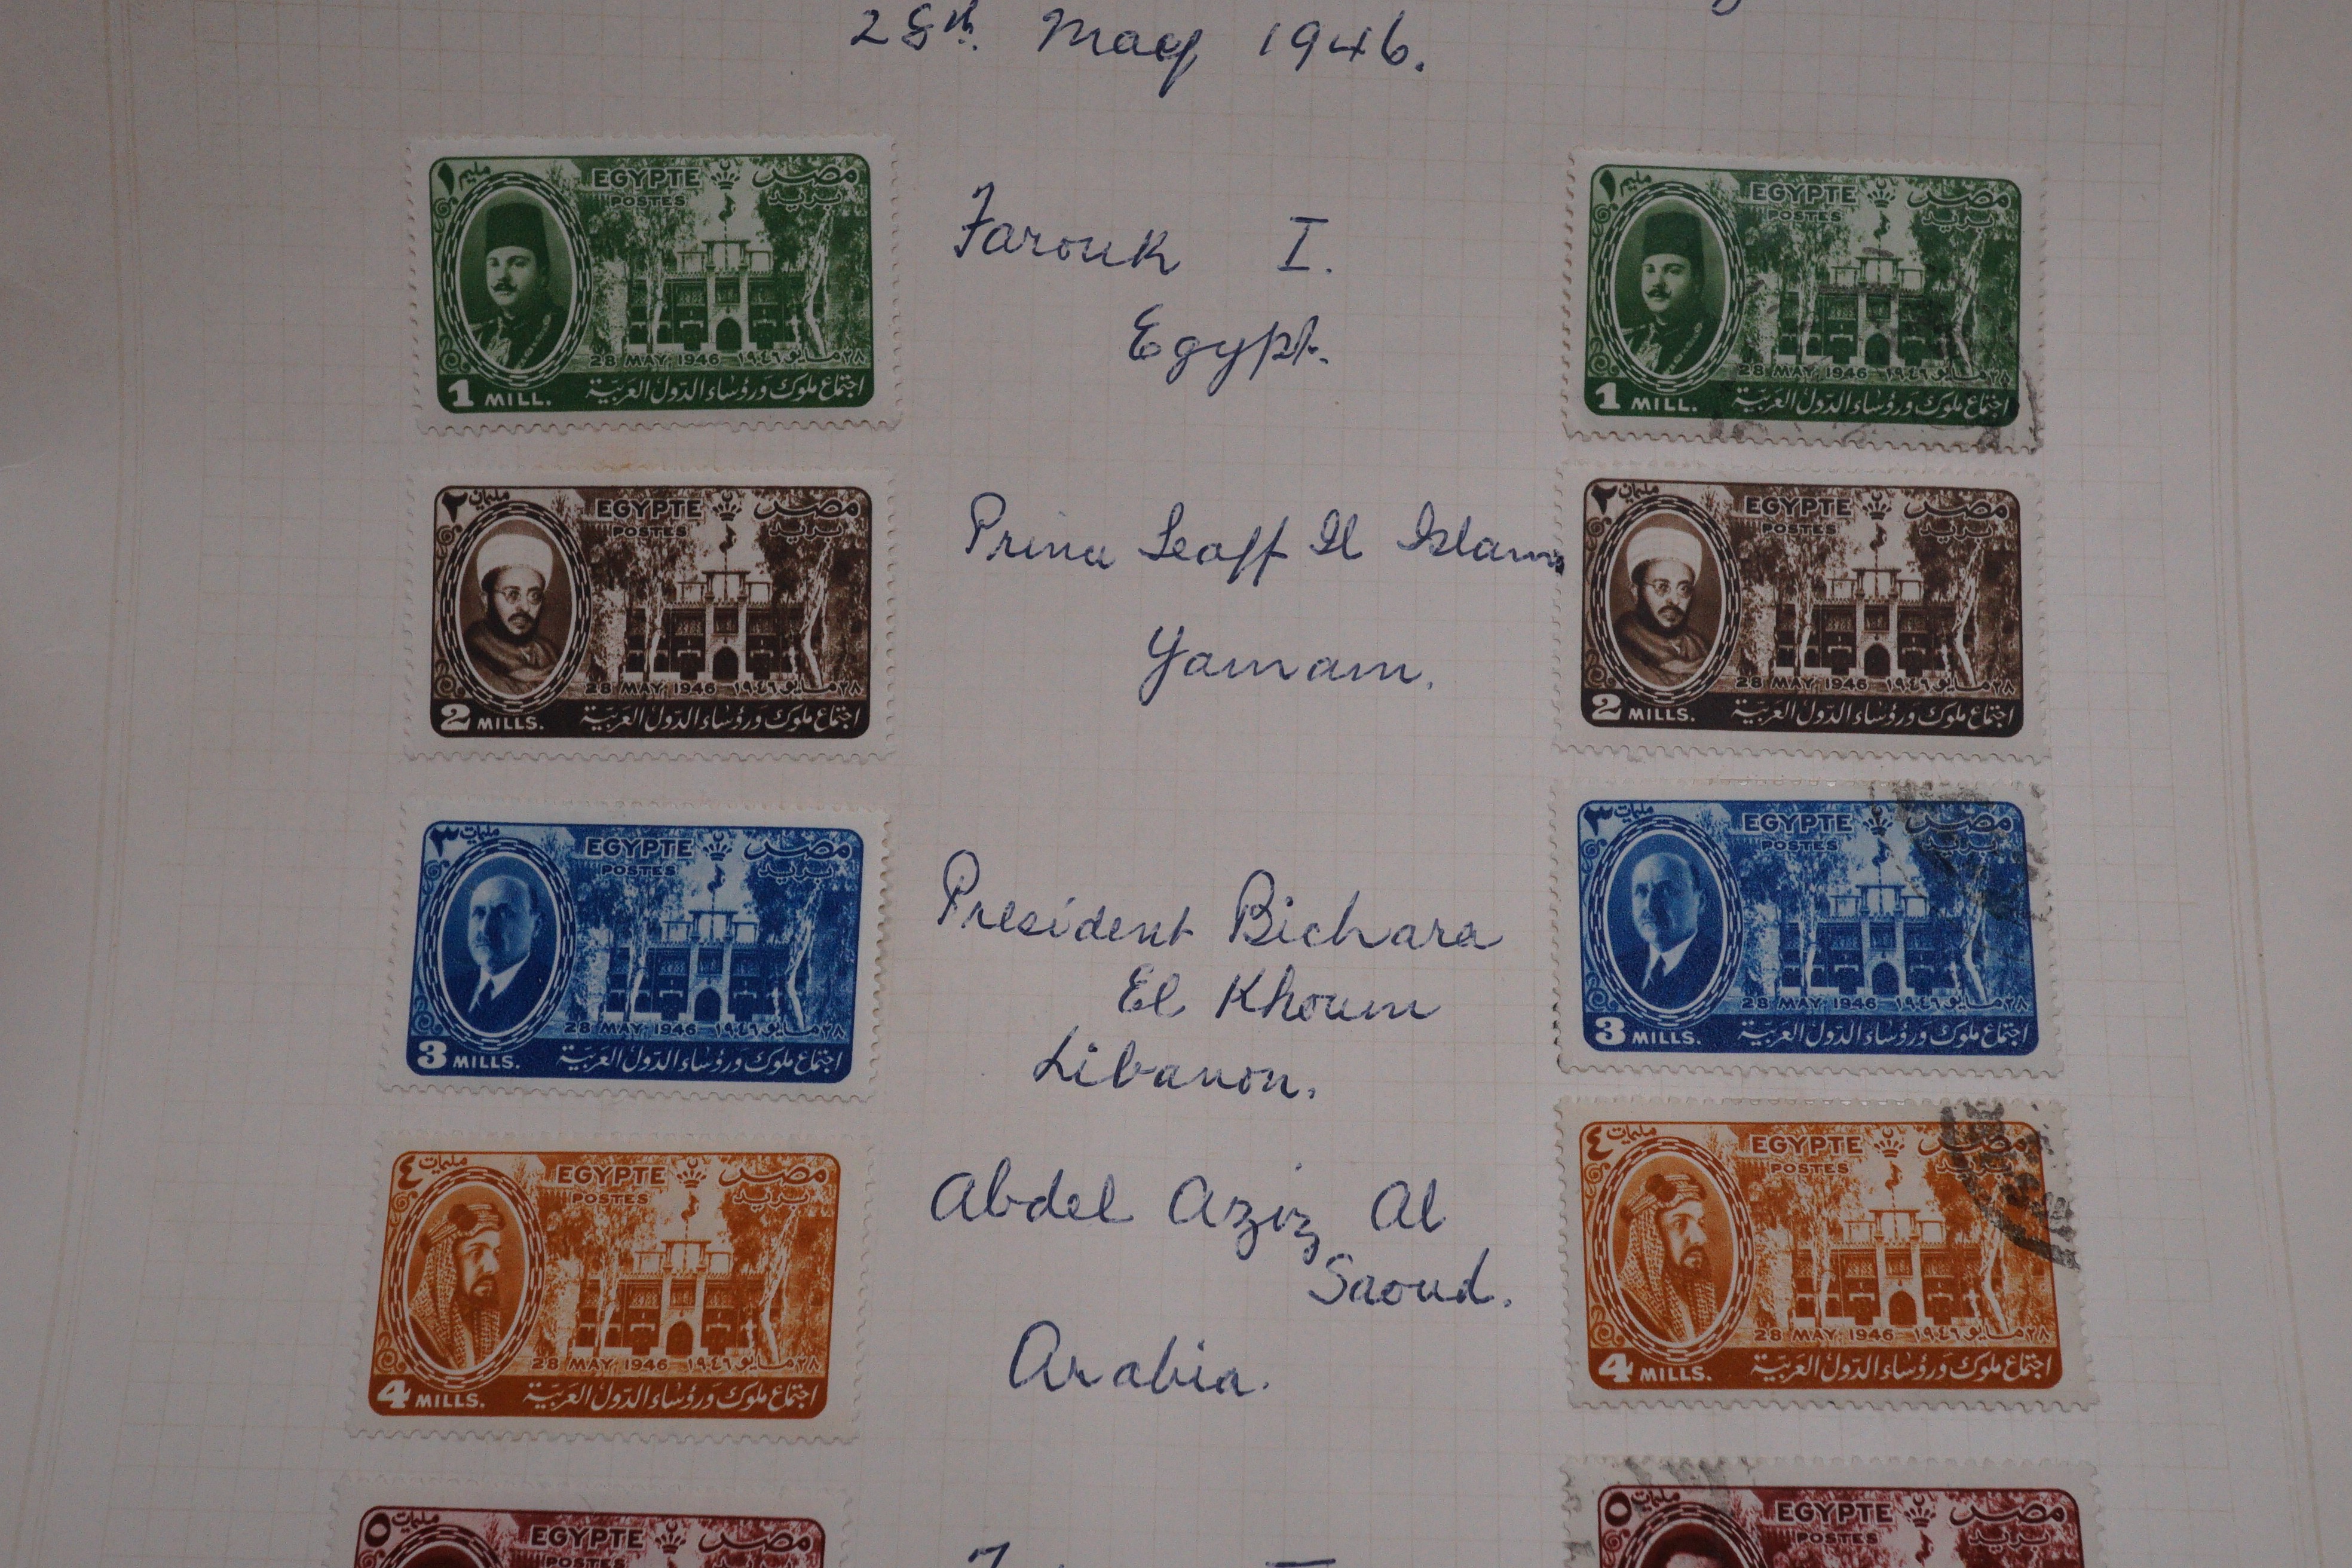 28th. May 1946.
١ مليم EGYPTE مصر
POSTES بريد
28 MAY 1946 ٢٨ مايو ١٩٤٦
1 MILL. اجتماع ملوك ورؤساء الدول العربية
Farouk I.
Egypt.
١ مليم EGYPTE مصر
POSTES بريد
28 MAY 1946 ٢٨ مايو ١٩٤٦
1 MILL. اجتماع ملوك ورؤساء الدول العربية
٢ مليمان EGYPTE مصر
POSTES بريد
28 MAY 1946 ٢٨ مايو ١٩٤٦
2 MILLS. اجتماع ملوك ورؤساء الدول العربية
Islam
٢ مليمان EGYPTE مصر
POSTES بريد
28 MAY 1946 ٢٨ مايو ١٩٤٦
2 MILLS. اجتماع ملوك ورؤساء الدول العربية
٣ مليمات EGYPTE مصر
POSTES بريد
28 MAY 1946 ٢٨ مايو ١٩٤٦
3 MILLS. اجتماع ملوك ورؤساء الدول العربية
President Bichara
El
Libanon.
٣ مليمات EGYPTE مصر
POSTES بريد
28 MAY 1946 ٢٨ مايو ١٩٤٦
3 MILLS. اجتماع ملوك ورؤساء الدول العربية
٤ مليمات EGYPTE مصر
POSTES بريد
28 MAY 1946 ٢٨ مايو ١٩٤٦
4 MILLS. اجتماع ملوك ورؤساء الدول العربية
Abdel Aziz Al
Saoud.
Arabia.
٤ مليمات EGYPTE مصر
POSTES بريد
28 MAY 1946 ٢٨ مايو ١٩٤٦
4 MILLS. اجتماع ملوك ورؤساء الدول العربية
٥ مليمات EGYPTE مصر
POSTES بريد
٥ مليمات EGYPTE مصر
POSTES بريد